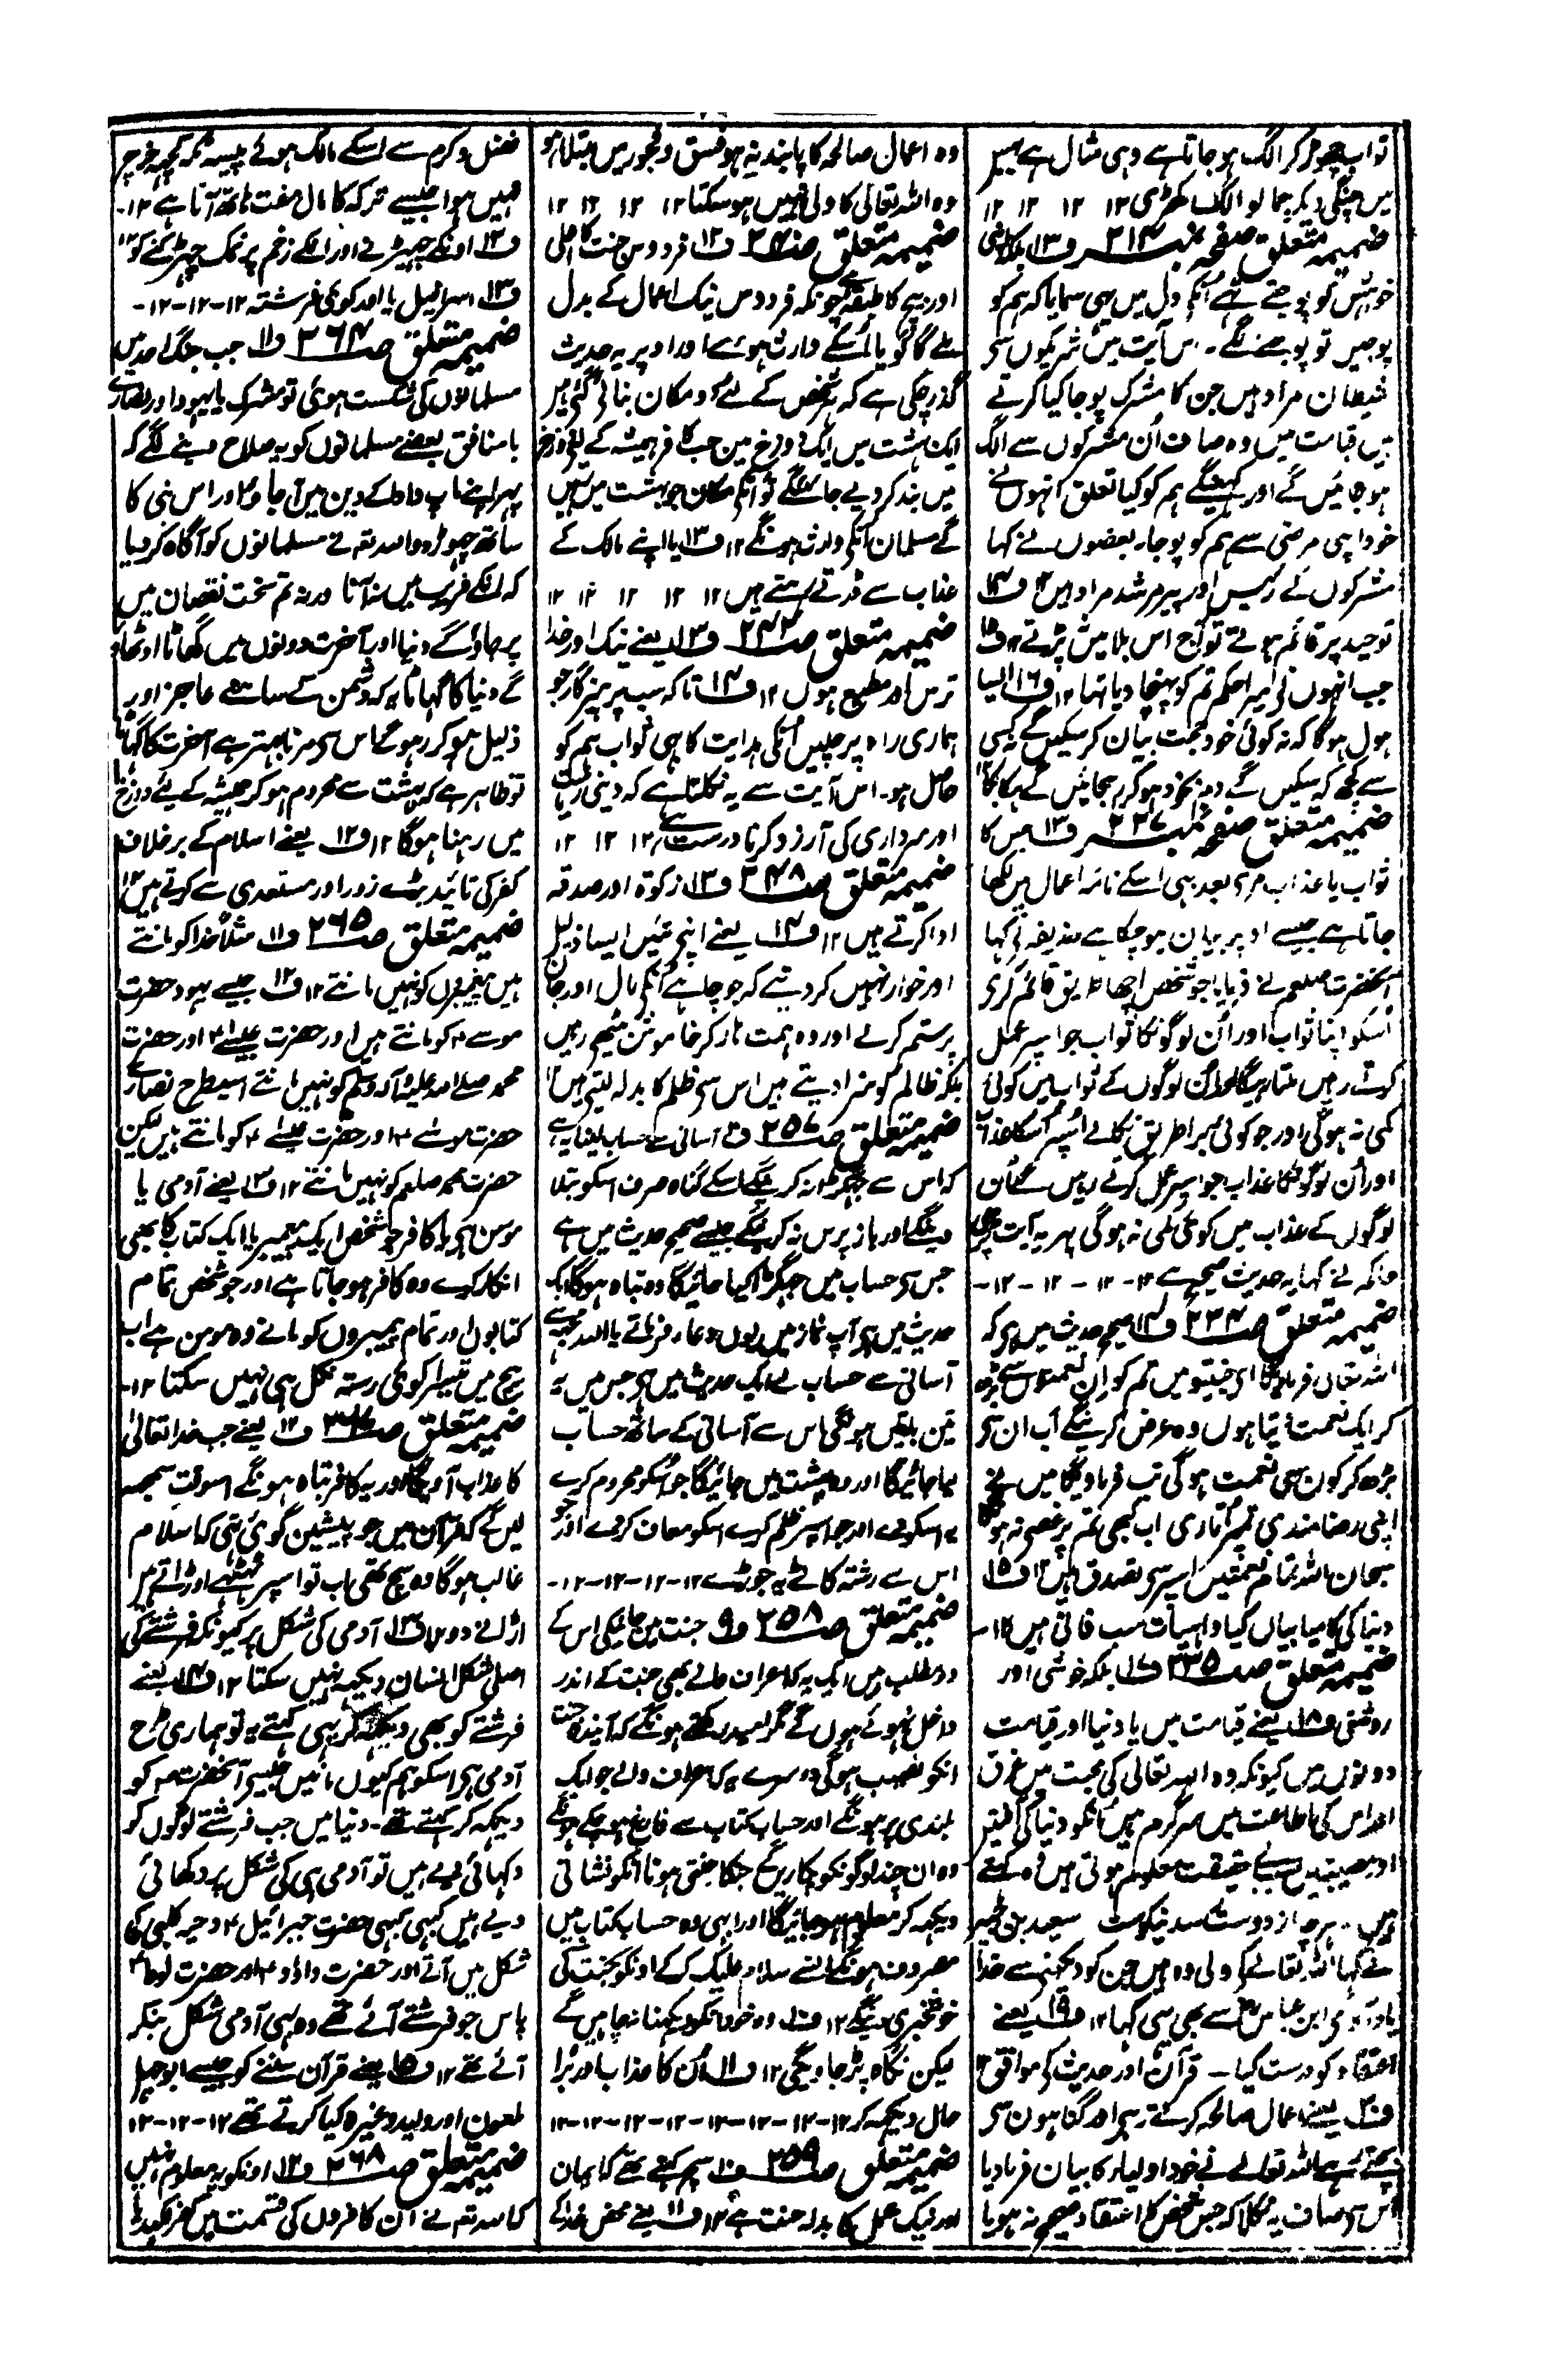 تو اب چھوڑ کر الگ ہو جاتا ہے وہی مثال ہے بہس
میں چنگی دیکر جمالو الگ کھڑی ۱۲ ۱۲ ۱۲ ۱۲
ضمیمہ متعلق صفحہ نمبر ۲۱۴ ف۱۳ بلکہ اپنی
خوشی کو پوجتے تھے اُنکے دل میں یہی سمایا کہ ہم کو
پوجیں تو پوجنے لگے۔ اس آیت میں شریکوں سے
شیطان مراد ہیں جن کا مشرک پوجا کیا کرتے
ہیں قیامت میں وہ صاف اُن مشرکوں سے الگ
ہو جائیں گے اور کہینگے ہم کو کیا تعلق انہوں نے
خود اپنی مرضی سے ہم کو پوجا۔ بعضوں نے کہا
مشرکوں کے رئیس اور پیر مرشد مراد ہیں ۱۲ ف۱۴
توحید پر قائم ہوتے تو آج اس بلا میں نہ پڑتے ۱۲ ف۱۵
جب انہوں نے میرا حکم تم کو پہنچا دیا تھا ۱۲ ف۱۶ ایسا
ہول ہوگا کہ نہ کوئی خود حجت بیان کر سکیں گے نہ کسی
سے کچھ کہہ سکیں گے دم بخود ہو کر رہجائیں گے ہکا بکا
ضمیمہ متعلق صفحہ نمبر ۲۲۷ ف۱۳ جس کا
ثواب یا عذاب مرے بعد بھی اسکے نامہ اعمال میں لکھا
جاتا ہے جیسے اوپر بیان ہو چکا ہے حذیفہ نے کہا
آنحضرت صلعم نے فرمایا جو شخص اچھا طریق قائم کرے
اُسکو اپنا ثواب اور اُن لوگونکا ثواب جو اسپر عمل
کرتے رہیں ملتا رہیگا اور اُن لوگوں کے ثواب میں کوئی
کمی نہ ہوگی اور جو کوئی برا طریق نکالے اُسپر اُسکا عذاب
اور اُن لوگونکا عذاب جو اسپر عمل کرتے رہیں گے اُن
لوگوں کے عذاب میں کوئی کمی نہ ہوگی پھر یہ آیت پڑھی
حاکم نے کہا یہ حدیث صحیح ہے ۱۲-۱۲-۱۲-۱۲-
ضمیمہ متعلق صـ ۲۳۴ ف۱۴ صحیح حدیث میں ہے کہ
اللہ تعالیٰ فرمائیگا اے جنتیو میں تم کو اِن نعمتوں سے بڑھ
کر ایک نعمت دیتا ہوں وہ عرض کرینگے اب ان سے
بڑھ کر کون سی نعمت ہوگی تب فرماویگا میں نے
اپنی رضامندی تمپر اُتاری اب کبھی تم پر غصے نہ ہونگا
سبحان اللہ تمام نعمتیں اسپر سے تصدق ہیں ۱۲ ف۱۵
دنیا کی کامیابیاں کیا واہیات سب فانی ہیں ۱۲-
ضمیمہ متعلق صـ ۲۳۵ ف۱۷ بلکہ خوشی اور
روشنی ف۱۸ یعنے قیامت میں یا دنیا اور قیامت
دونوں میں کیونکہ وہ اللہ تعالی کی محبت میں غرق
اور اس کی اطاعت میں سرگرم ہیں اُنکو دنیا کی تکلیفیں
اور مصیبتیں بے حقیقت معلوم ہوتی ہیں وہ کہتے
ہیں۔ ہرچہ از دوست میرسد نیکوست سعید بن جبیر
نے کہا اللہ تعالےٰ کے ولی وہ ہیں جن کو دیکھنے سے خدا
یاد آوے ابن عباسؓ سے بھی یہی کہا ۱۲ ف۱۹ یعنے
اعتقاد کو درست کیا۔ قرآن اور حدیث کے موافق ۱۲
ف۲۰ یعنے اعمال صالحہ کرتے رہے اور گناہوں سے
بچتے رہے اللہ تعالے نے خود اولیاء کا بیان فرما دیا
اس سے صاف یہ نکلا کہ جس شخص کا اعتقاد صحیح نہ ہو یا
وہ اعمال صالحہ کا پابند نہ ہو فسق و فجور میں مبتلا ہو
وہ اللہ تعالی کا ولی نہیں ہو سکتا ۱۲ ۱۲ ۱۲ ۱۲
ضمیمہ متعلق صـ ف۱۲ فردوس جنت کا اعلی
اور بیچ کا طبقہ ہے چونکہ فردوس نیک اعمال کے بدل
ملے گا گویا اُسکے وارث ہوئے اور اوپر یہ حدیث
گذر چکی ہے کہ ہر شخص کے لئے دو مکان بنائے گئے ہیں
ایک بہشت میں ایک دوزخ میں جب کافر ہمیشہ کے لیے دوزخ
میں بند کر دیے جائینگے تو اُنکے مکان جو بہشت میں تھیں
گے مسلمان اُنکے وارث ہونگے ۱۲ ف۱۳ یا اپنے مالک کے
عذاب سے ڈرتے رہتے ہیں ۱۲ ۱۲ ۱۲ ۱۲ ۱۲
ضمیمہ متعلق صـ ۲۴۴ ف۱۳ یعنے نیک اور خدا
ترس اور مطیع ہوں ۱۲ ف۱۴ تاکہ سب پرہیزگار جو
ہماری راہ پر چلیں اُنکی ہدایت کا بھی ثواب ہم کو
حاصل ہو۔ اس آیت سے یہ نکلتا ہے کہ دینی ریاست
اور سرداری کی آرزو کرنا درست ہے ۱۲ ۱۲ ۱۲
ضمیمہ متعلق صـ ۲۴۸ ف۱۳ زکوۃ اور صدقہ
ادا کرتے ہیں ۱۲ ف۱۴ یعنے اپنے تئیں ایسا ذلیل
اور خوار نہیں کر دیتے کہ جو چاہے اُنکے مال اور جان
پر ستم کرلے اور وہ ہمت ہار کر خاموش بیٹھے رہیں
بلکہ ظالم کو سزا دیتے ہیں اس سے ظلم کا بدلہ لیتے ہیں ۱۲
ضمیمہ متعلق صـ ۲۵۷ ف۷ آسانی سے حساب لینا یہ ہے
کہ اس سے جھگڑا نہ کرینگے اسکے گناہ صرف اسکو بتلا
دینگے اور باز پرس نہ کرینگے جیسے صحیح حدیث میں ہے
جس سے حساب میں جھگڑا کیا جائیگا وہ تباہ ہوگا ایک
حدیث میں ہے آپ نماز میں یوں دعا فرماتے یا اللہ مجھ سے
آسانی سے حساب لے ایک حدیث میں ہے جس میں یہ
تین باتیں ہونگی اس سے آسانی کے ساتھ حساب
لیا جائیگا اور وہ بہشت میں جائیگا جو اُسکو محروم کرے
یہ اسکو دے اور جو اسپر ظلم کرے اسکو معاف کردے اور جو
اس سے رشتہ کاٹے یہ جوڑے ۱۲-۱۲-۱۲-۱۲-
ضمیمہ متعلق صـ ۲۵۸ ف۹ جنت میں جائینگے اس کے
دو مطلب ہیں ایک یہ کہ اعراف والے بھی جنت کے اندر
داخل نہ ہوئے ہوں گے مگر امید رکھتے ہونگے کہ آیندہ جنت
انکو نصیب ہوگی دوسرے یہ کہ اعراف والے جو ایک
بلندی پر ہونگے اور حساب کتاب سے فارغ ہو چکے ہونگے
وہ ان چند لوگونکو پکاریں گے جنکا جنتی ہونا انکو نشانی
دیکھہ کر معلوم ہو جائیگا اور ابھی وہ حساب کتاب میں
مصروف ہونگے اُنسے سلام علیک کرکے اونکو جنت کی
خوشخبری دینگے ۱۲ ف۱۰ وہ خود انکو دیکھنا نہ چاہیں گے
لیکن نگاہ پڑ جاویگی ۱۲ ف۱۱ اُن کا عذاب اور بُرا
حال دیکھہ کر ۱۲-۱۲-۱۲-۱۲-۱۲-۱۲-۱۲-۱۲
ضمیمہ متعلق صـ ۲۵۹ ف۱۰ ہم کہتے تھے کہ ایمان
اور نیک عمل کا بدلہ جنت ہے ۱۲ ف۱۱ یعنے محض خدا کے
فضل و کرم سے اسکے مالک ہوئے پیسہ ٹکہ کچھ خرچ
نہیں ہوا جیسے ترکہ کا مال مفت ہاتھ آتا ہے ۱۲-
ف۱۲ اونکے چھیڑنے اور اُنکے زخم پر نمک چھڑکنے کو ۱۲
ف۱۳ اسرافیل یا اور کوئی فرشتہ ۱۲-۱۲-۱۲-
ضمیمہ متعلق صـ ۲۶۴ ف۱۱ جب جنگ احد میں
مسلمانوں کی شکست ہوئی تو مشرک یا یہود اور نصاریٰ
یا منافق بعضے مسلمانوں کو یہ صلاح دینے لگے کہ
پھر اپنے باپ دادا کے دین میں آ جاؤ اور اس نبی کا
ساتھ چھوڑ دو اللہ تعہ نے مسلمانوں کو آگاہ کر دیا
کہ اُنکے فریب میں نہ آنا ورنہ تم سخت نقصان میں
پڑ جاؤگے دنیا اور آخرت دونوں میں گھاٹا اوٹھاؤ
گے دنیا کا گھاٹا یہ کہ دشمن کے سامنے عاجز اور
ذلیل ہو کر رہو گے اس سے مرنا بہتر ہے آخرت کا گھاٹا
تو ظاہر ہے کہ بہشت سے محروم ہو کر ہمیشہ کے لیے دوزخ
میں رہنا ہوگا ۱۲ ف۱۲ یعنے اسلام کے برخلاف
کفر کی تائید بڑے زور اور مستعدی سے کرتے ہیں ۱۲
ضمیمہ متعلق صـ ۲۶۵ ف۱۱ مثلاً خدا کو مانتے
ہیں پیغمبروں کو نہیں مانتے ۱۲ ف۱۲ جیسے یہود حضرت
موسے ؑ کو مانتے ہیں اور حضرت عیسےٰ ؑ اور حضرت
محمد صلے اللہ علیہ و آلہ وسلم کو نہیں مانتے اسیطرح نصاریٰ
حضرت موسےٰ ؑ اور حضرت عیسےٰ ؑ کو مانتے ہیں لیکن
حضرت محمد صلعم کو نہیں مانتے ۱۲ ف۱۳ یعنے آدمی یا
مومن ہے یا کافر جو شخص ایک پیغمبر یا ایک کتاب کا بھی
انکار کرے وہ کافر ہو جاتا ہے اور جو شخص تمام
کتابوں اور تمام پیغمبروں کو مانے وہ مومن ہے اب
بیچ میں تیسرا کوئی رستہ نکل ہی نہیں سکتا ۱۲-
ضمیمہ متعلق صـ ف۱۲ یعنے جب خدا تعالیٰ
کا عذاب آویگا اور یہ کافر تباہ ہونگے اسوقت سمجھ
لیں گے کہ قرآن میں جو پیشین گوئی تھی کہ اسلام
غالب ہوگا وہ سچ تھی اب تو اسپر ٹھٹھے اوڑاتے ہیں
اڑا لے دو ۱۲ ف۱۳ آدمی کی شکل پر کیونکہ فرشتے کی
اصلی شکل انسان دیکھہ نہیں سکتا ۱۲ ف۱۴ یعنے
فرشتے کو بھی دیکھہ کر یہی کہتے یہ تو ہماری طرح
آدمی ہے اسکو ہم کیوں مانیں جیسے آنحضرت صلعم کو
دیکھہ کر کہتے تھے۔ دنیا میں جب فرشتے لوگوں کو
دکھائی دیے ہیں تو آدمی ہی کی شکل پر دکھائی
دیے ہیں کبھی کبھی حضرت جبرائیل ؑ دحیہ کلبی کی
شکل میں آتے اور حضرت داؤد ؑ اور حضرت لوط ؑ
پاس جو فرشتے آئے تھے وہ بھی آدمی کی شکل بنکر
آئے تھے ۱۲ ف۱۵ یعنے قرآن سننے کو جیسے ابوجہل
ملعون اور ولید وغیرہ کیا کرتے تھے ۱۲-۱۲-۱۲
ضمیمہ متعلق صـ ۲۶۸ ف۱۲ اونکو یہ معلوم نہیں
کہ اللہ تعہ نے ان کافروں کی قسمت میں کفر لکھدیا